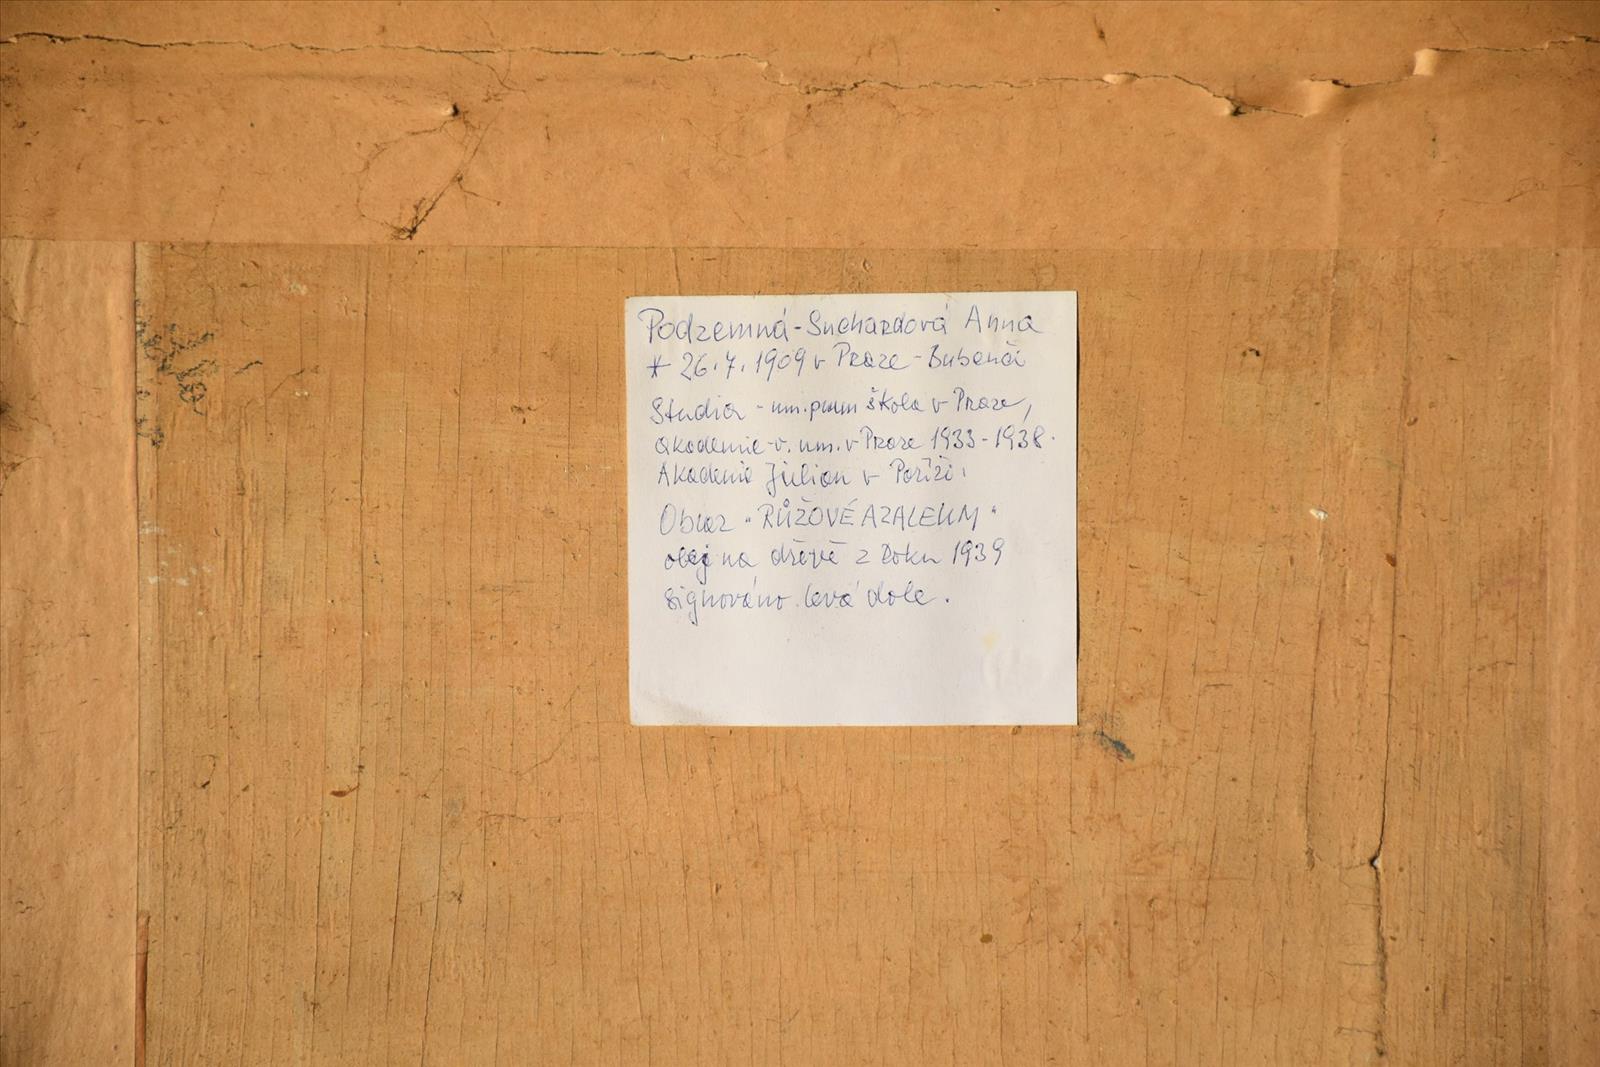 Podzemná-Suchardová Anna
* 26.7.1909 v Praze-Bubenči
Studia - um.prům škola v Praze,
akademie v. um. v Praze 1933-1938.
Akademie Julian v Paříži.
Obraz "RŮŽOVÉ AZALEUM"
olej na dřevě z roku 1939
signováno levá dole.